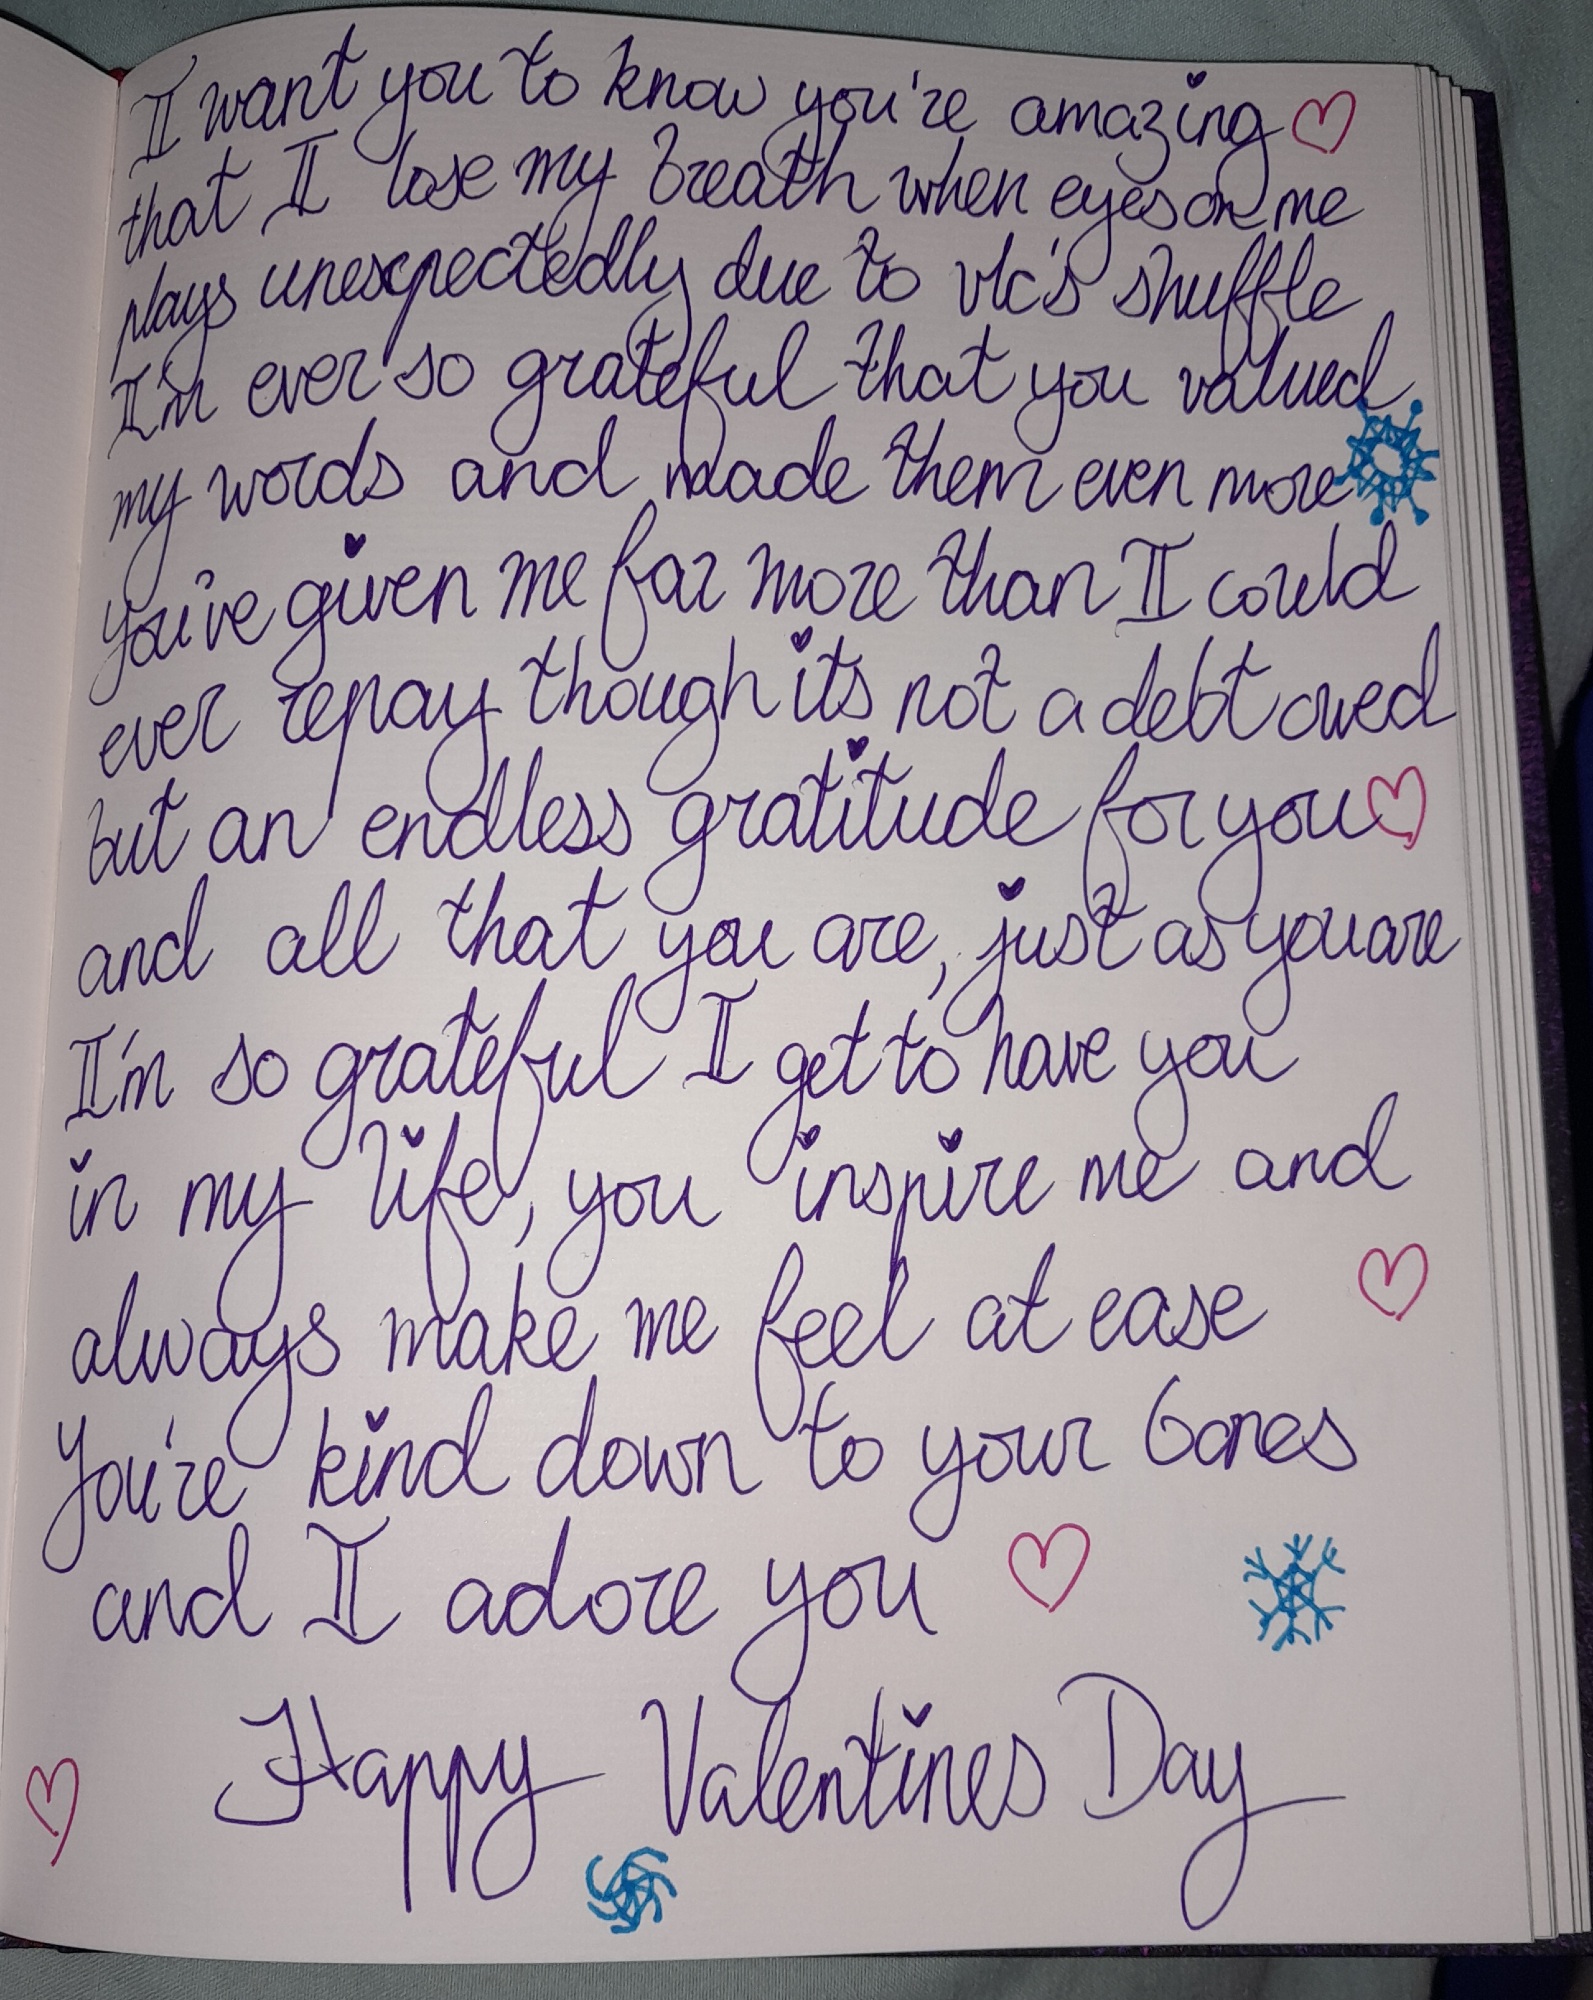 I want you to know you're amazing
that I lose my breath when eyes on me
plays unexpectedly due to vlc's shuffle
I'm ever so grateful that you valued
my words and made them even more
you've given me far more than I could
ever repay though its not a debt owed
but an endless gratitude for you
and all that you are, just as you are
I'm so grateful I get to have you
in my life, you inspire me and
always make me feel at ease
You're kind down to your bones
and I adore you
Happy Valentines Day